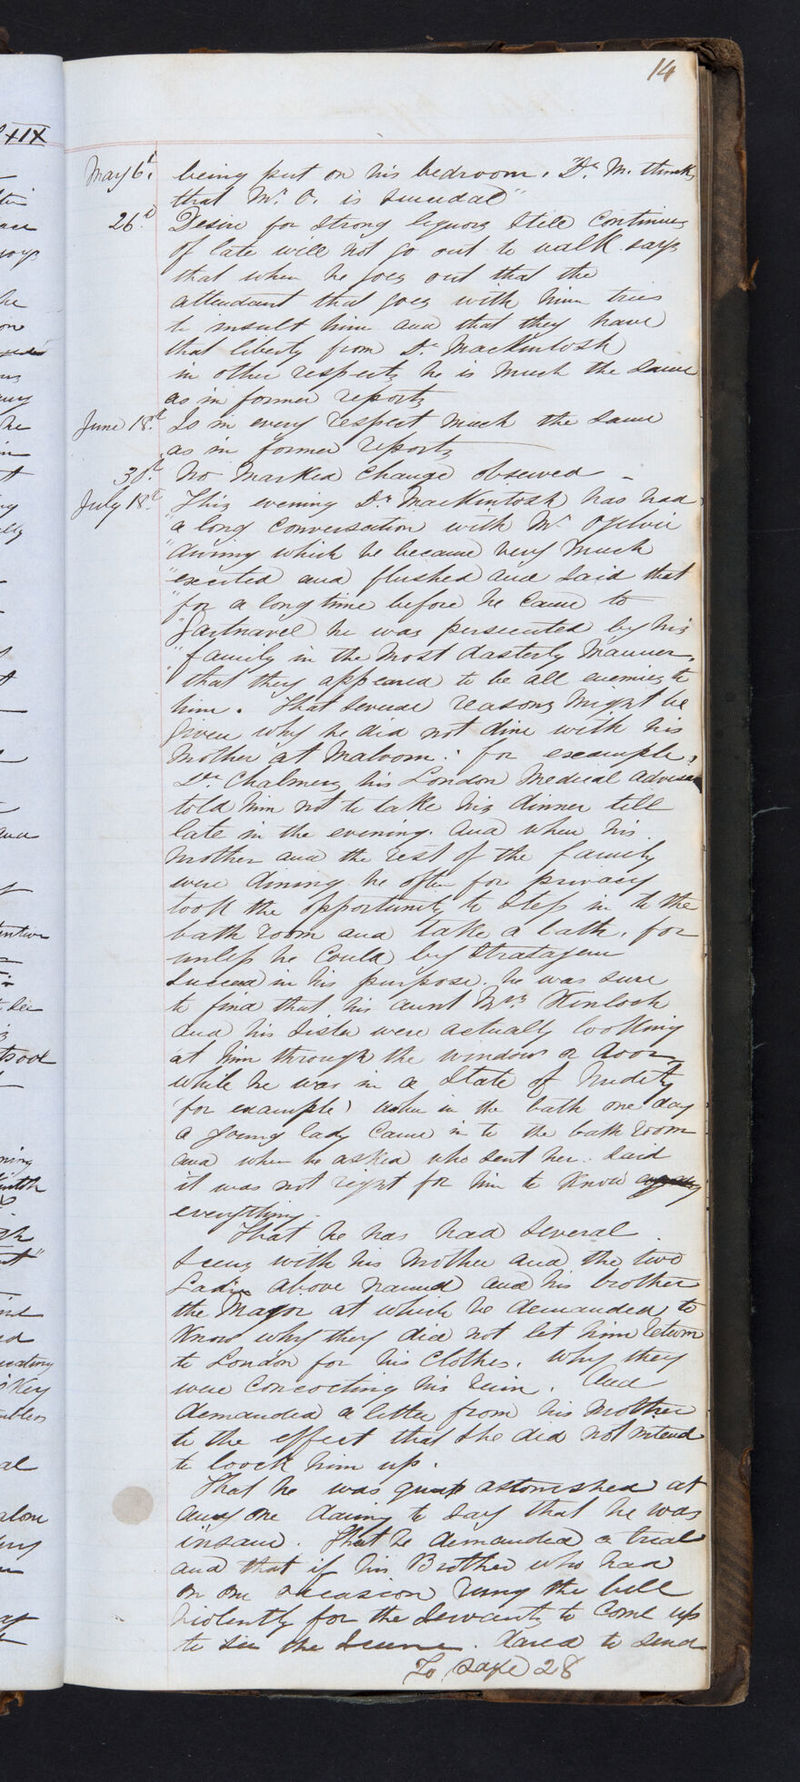 14
May 6th being put on his bedroom. Dr. M. thinks
that Mr. O. is suicidal"
26th Desire for strong liquors still continues
of late will not go out to walk says
that when he goes out that the
attendant that goes with him tries
to insult him and that they have
that liberty from Dr. Mackintosh
in other respects he is much the same
as in former reports
June 18th Is in every respect much the same
as in former reports
30th No marked change observed
July 18th This evening Dr. Mackintosh has had
"a long conversation with Mr. Ogilvie
"during which he became very much
"excited and flushed and said that
"for a long time before he came to
"Gartnavel he was persecuted by his
"family in the most dasterly manner,
"that they appeared to be all enemies to
him. That several reasons might be
given why he did not dine with his
Mother at Malvern: for example,
Dr. Chalmers his London Medical adviser
told him not to take his dinner till
late in the evening. and when his
Mother and the rest of the family
were dining he often for privacy
took the opportunity to step in to the
bath room and take a bath, for
unless he could by stratagem
succeed in his purpose, he was sure
to find that his aunt Mrs Kinloch
and his Sister were actually looking
at him through the window or door
while he was in a state of nudity
for example, when in the bath one day
a young lady came in to the bath room
and when he asked who sent her. said
it was not right for him to know
everything.
That he has had several
scenes with his Mother and the two
Ladies above named and his brother
the Major at which he demanded to
know why they did not let him return
to London for his clothes. Why they
were concocting his ruin. And
demanded a letter from his Mother
to the effect that she did not intend
to loock him up.
That he was astonished at
any one daring to say that he was
insane. That he demanded a trial
and that if his Brother who had
on one occasion rung the bell
violently for the servants to come up
to see the scene. dared to send
To page 28